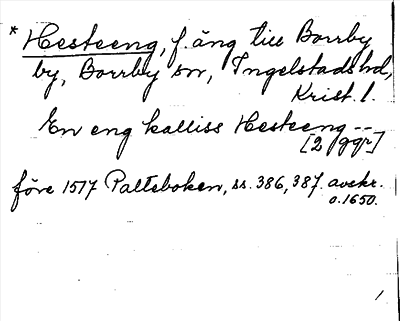 * Hesteeng, f. äng till Borrby
by, Borrby sn, Ingelstads hd,
Krist. l.
En eng kalliss Hesteeng --
[2 ggr]
före 1517 Palteboken, ss. 386, 387. avskr.
o. 1650.
1